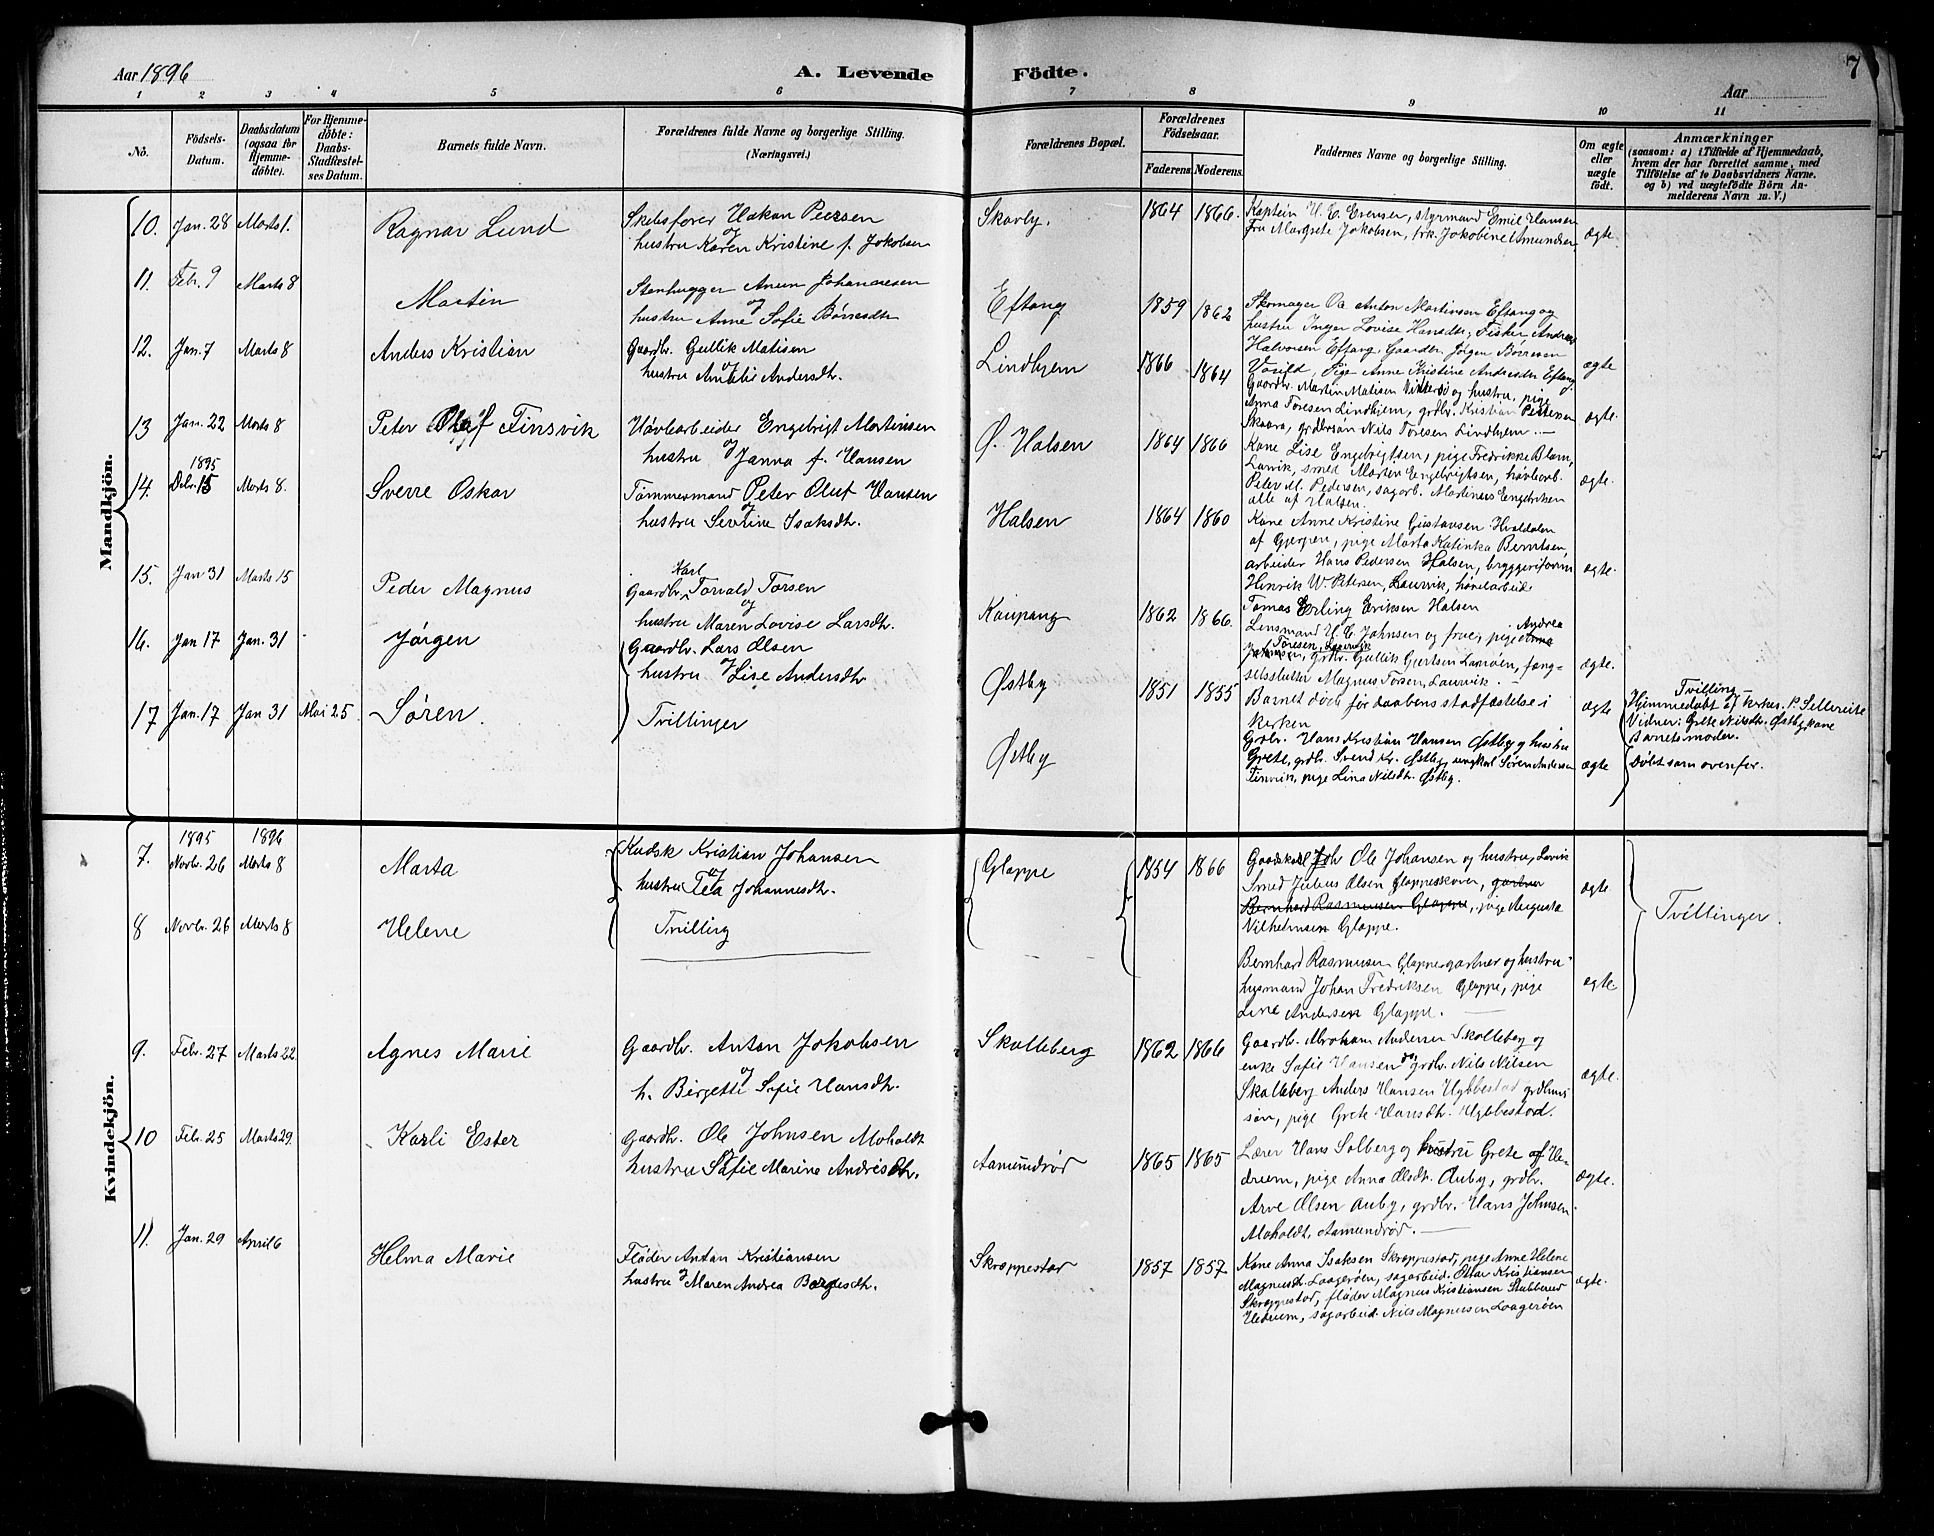 Aar 1896
A. Levende
Födte.
7
Aar
1 2 3 4 5 6 7 8 9 10 11
No.
Födsels-
Datum.
Daabsdatum
(ogsaa for
Hjemme-
döbte).
For Hjemme-
döbte:
Daabs-
Stadfæstel-
ses Datum.
Barnets fulde Navn.
Forældrenes fulde Navne og borgerlige Stilling.
(Næringsvei.)
Forældrenes Bopæl.
Forældrenes
Födselsaar.
Faderens Moderens.
Faddernes Navne og borgerlige Stilling.
Om ægte
eller
uægte
födt.
Anmærkninger
(saasom: a) i Tilfælde af Hjemmedaab,
hvem der har forrettet samme, med
Tilföielse af to Daabsvidners Navne.
og b) ved uægtefödte Börn An-
melderens Navn m. V.)
Mandkjön.
10. Jan. 28 Marts 1. Ragnar Lund
Skibsfører Hakan Peersen
og
hustru Karen Kristine f. Jokobsen
Skavby. 1864 1866.
Kaptein H. C. Evensen, styrmand Emil Hansen
fru Margrete Jakobsen, frk. Jokobine Amundsen
ægte.
11. Febr. 9 Marts 8 Martin
Stenhugger Anun Johannesen
og
hustru Anne Sofie Børresdtr
Eftang 1859 1862
Skomager Ole Anton Martinsen Eftang og
hustru Inger Lovise Hansdtr, Fisker Andreas
Halvorsen Eftang, Gaardbr. Jørgen Børresen
Varild, Pige Anne Kristine Andersdtr Eftang.
ægte
12. Jan. 7 Marts 8 Anders Kristian
Gaardbr. Gullik Matisen
og
hustru Amalie Andersdtr.
Lindhjem 1866 1864
Gaardbr. Martin Matisen og hustru, pige
Anna Toresen Lindhjem, grdbr. Kristian Pettersen
Skaara, grdbrsøn Nils Toresen Lindhjem. —
ægte.
13 Jan. 22 Marts 8 Peter Oluf Finsvik
Høvlearbeider Engebrigt Martinsen
og
hustru Janna f. Hansen
Ø. Halsen 1864 1866
Kone Lise Engebrigtsen, pige Fredrikke Blam,
Larvik, smed Morten Engebrigtsen, høvlearb.
Peter M. Pedersen, sagarb. Martinus Engebriktsen
alle af Halsen.
ægte.
1895
14. Debr. 15 Marts 8. Sverre Oskar
Tømmermand Peter Oluf Hansen
og
hustru Sevrine Isaksdtr.
Halsen 1864 1860
Kone Anne Kristine Gustavsen Hvaldalen
af Gjerpen, pige Marta Katinka Berntsen,
arbeider Hans Pedersen Halsen, bryggeriform
Hinrik W. Petersen, Laurvik, høvlearbeid
Tomas Erling Eriksen Halsen
ægte.
15. Jan 31 Marts 15 Peder Magnus
Karl
Gaardbr. Torvald Torsen
og
hustru Maren Lovise Larsdtr.
Kaupang 1862 1866.
Lensmand H. C. Johnsen og frue, pige Andrea
Toresen, Laurvik
grdbr. Gullik Gjertsen Lamøen, fæng-
selsslutter Magnus Torsen, Laurvik. —
ægte.
16. Jan 17 Jan. 31 Jørgen
Gaardbr. Lars Olsen
og
hustru Lise Andersdtr
Østby 1851 1855
Barnet døde før daabens stadfæstelse i
kirken
ægte
Tvilling
Hjemmedøbt af kirkes. P. Settereite
Vidner: Grete Nilsdtr. Østby, kone
barnets moder.
17 Jan. 17 Jan 31 Mai 25 Søren.
Tvillinger
Østby
Grdbr. Hans Kristian Hansen Østby og hustru
Grete, grdbr. Svend Kr. Østby, ungkarl Søren Andersen
Finsvik, pige Lina Nilsdtr. Østby.
ægte
Døbt som ovenfor.
Kvindekjön.
1895 1896
7. Novbr. 26 Marts 8 Marta
Kudsk Kristian Johansen
og
hustru Tea Johannesdtr.
Gloppe 1854 1866
Gaardskarl Ole Johansen og hustru, Larvik
Smed Julius Olsen Gloppeskoven, gartner
Bernhard Rasmussen Gloppe, pige Augusta
Vilhelmsen Gloppe.
ægte
Tvillinger.
8 Novbr. 26 Marts 8 Helene
Tvilling
Bernhard Rasmussen Gloppe gartner og hustru
husmand Johan Fredriksen Gloppe, pige
Line Andersen Gloppe. —
ægte
9. Febr. 27 Marts 22 Agnes Marie
Gaardbr. Anton Jokobsen
og
h. Birgette Sofie Hansdtr.
Skalleberg 1862 1866
Gaardbr. Abraham Andersen Skalleberg og
enke Sofie Hansen og grdbr. Nils Nilsen
Skalleberg Anders Hansen Hybbestad grdbrs-
søn, pige Grete Hansdtr. Hybbestad.
ægte.
10 Febr. 25 Marts 29. Karli Ester
Gaardbr. Ole Johnsen Moholdt
og
hustru Sofie Marine Andrisdtr.
Aamundrød 1865 1865
Lærer Hans Solberg og hustru Grete af He-
drum, pige Anna Olsdtr. Auby, grdbr.
Arve Olsen Auby, grdbr. Hans Johnsen
Moholdt, Aamundrød. —
ægte.
11. Jan. 29 April 6 Helma Marie
Fløder Anton Kristiansen
og
hustru Maren Andrea Borgesdtr.
Skroppestad 1857 1857
Kone Anna Isaksen Skroppestad, pige Anne Helene
Magnusdtr. Laagerøen, sagarbeid. Ottar Kristiansen
Skroppestad, fløder Magnus Kristiansen Stubberød
Hedrum, sagarbeid. Nils Magnusen Laagerøen
ægte.